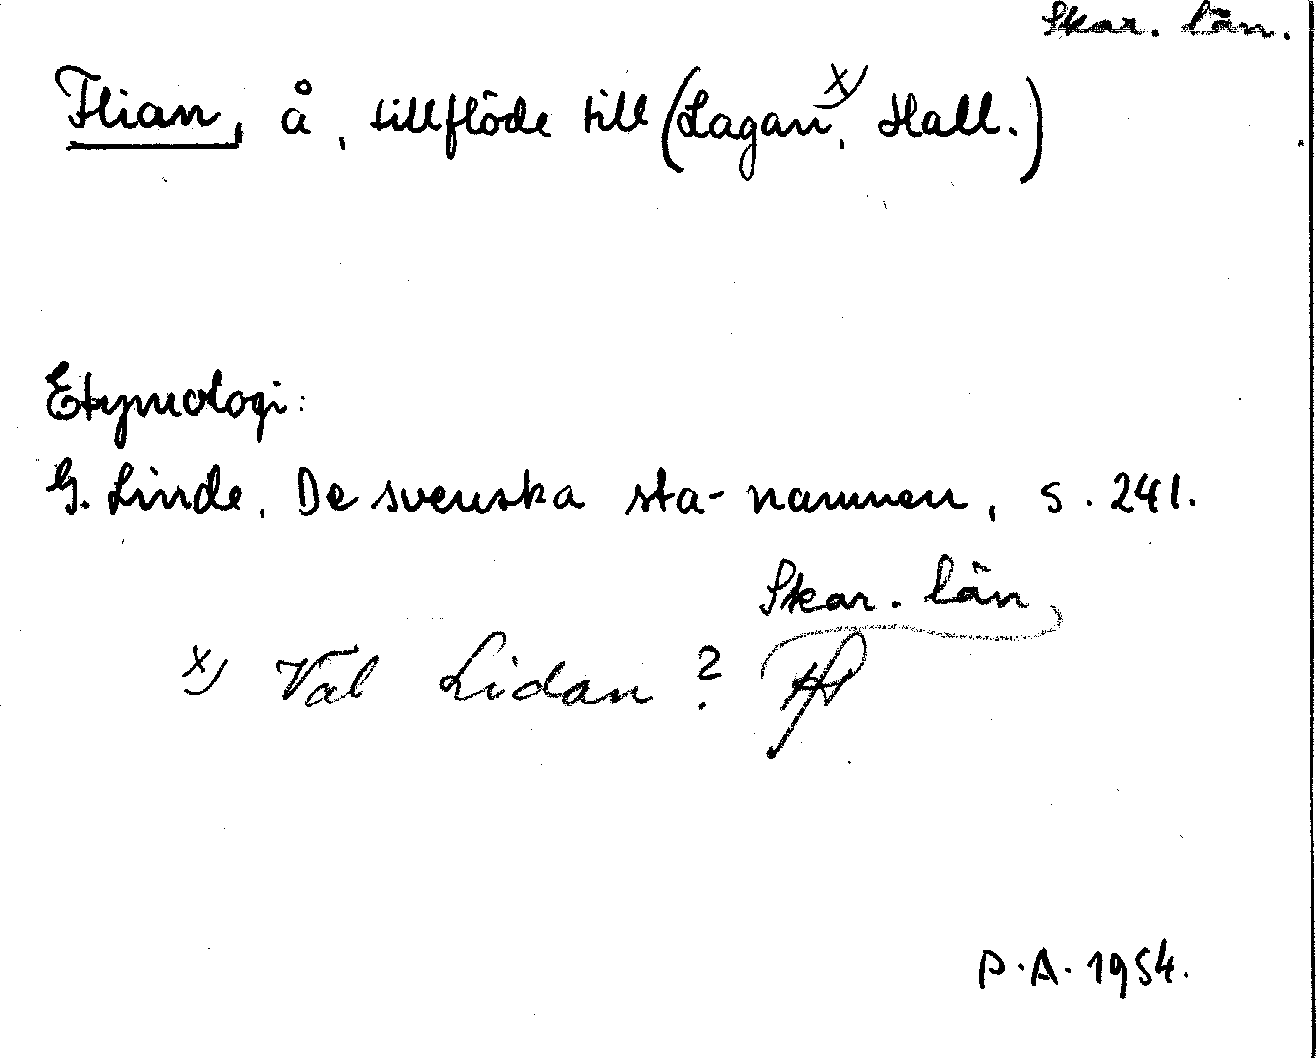 Skar. län.
Flian, å, tillflöde till (Lagan x), Hall.)
Etymologi:
G. Linde, De svenska sta-namnen, s. 241.
Skar. län
x) Väl Lidan?
P.A. 1954.